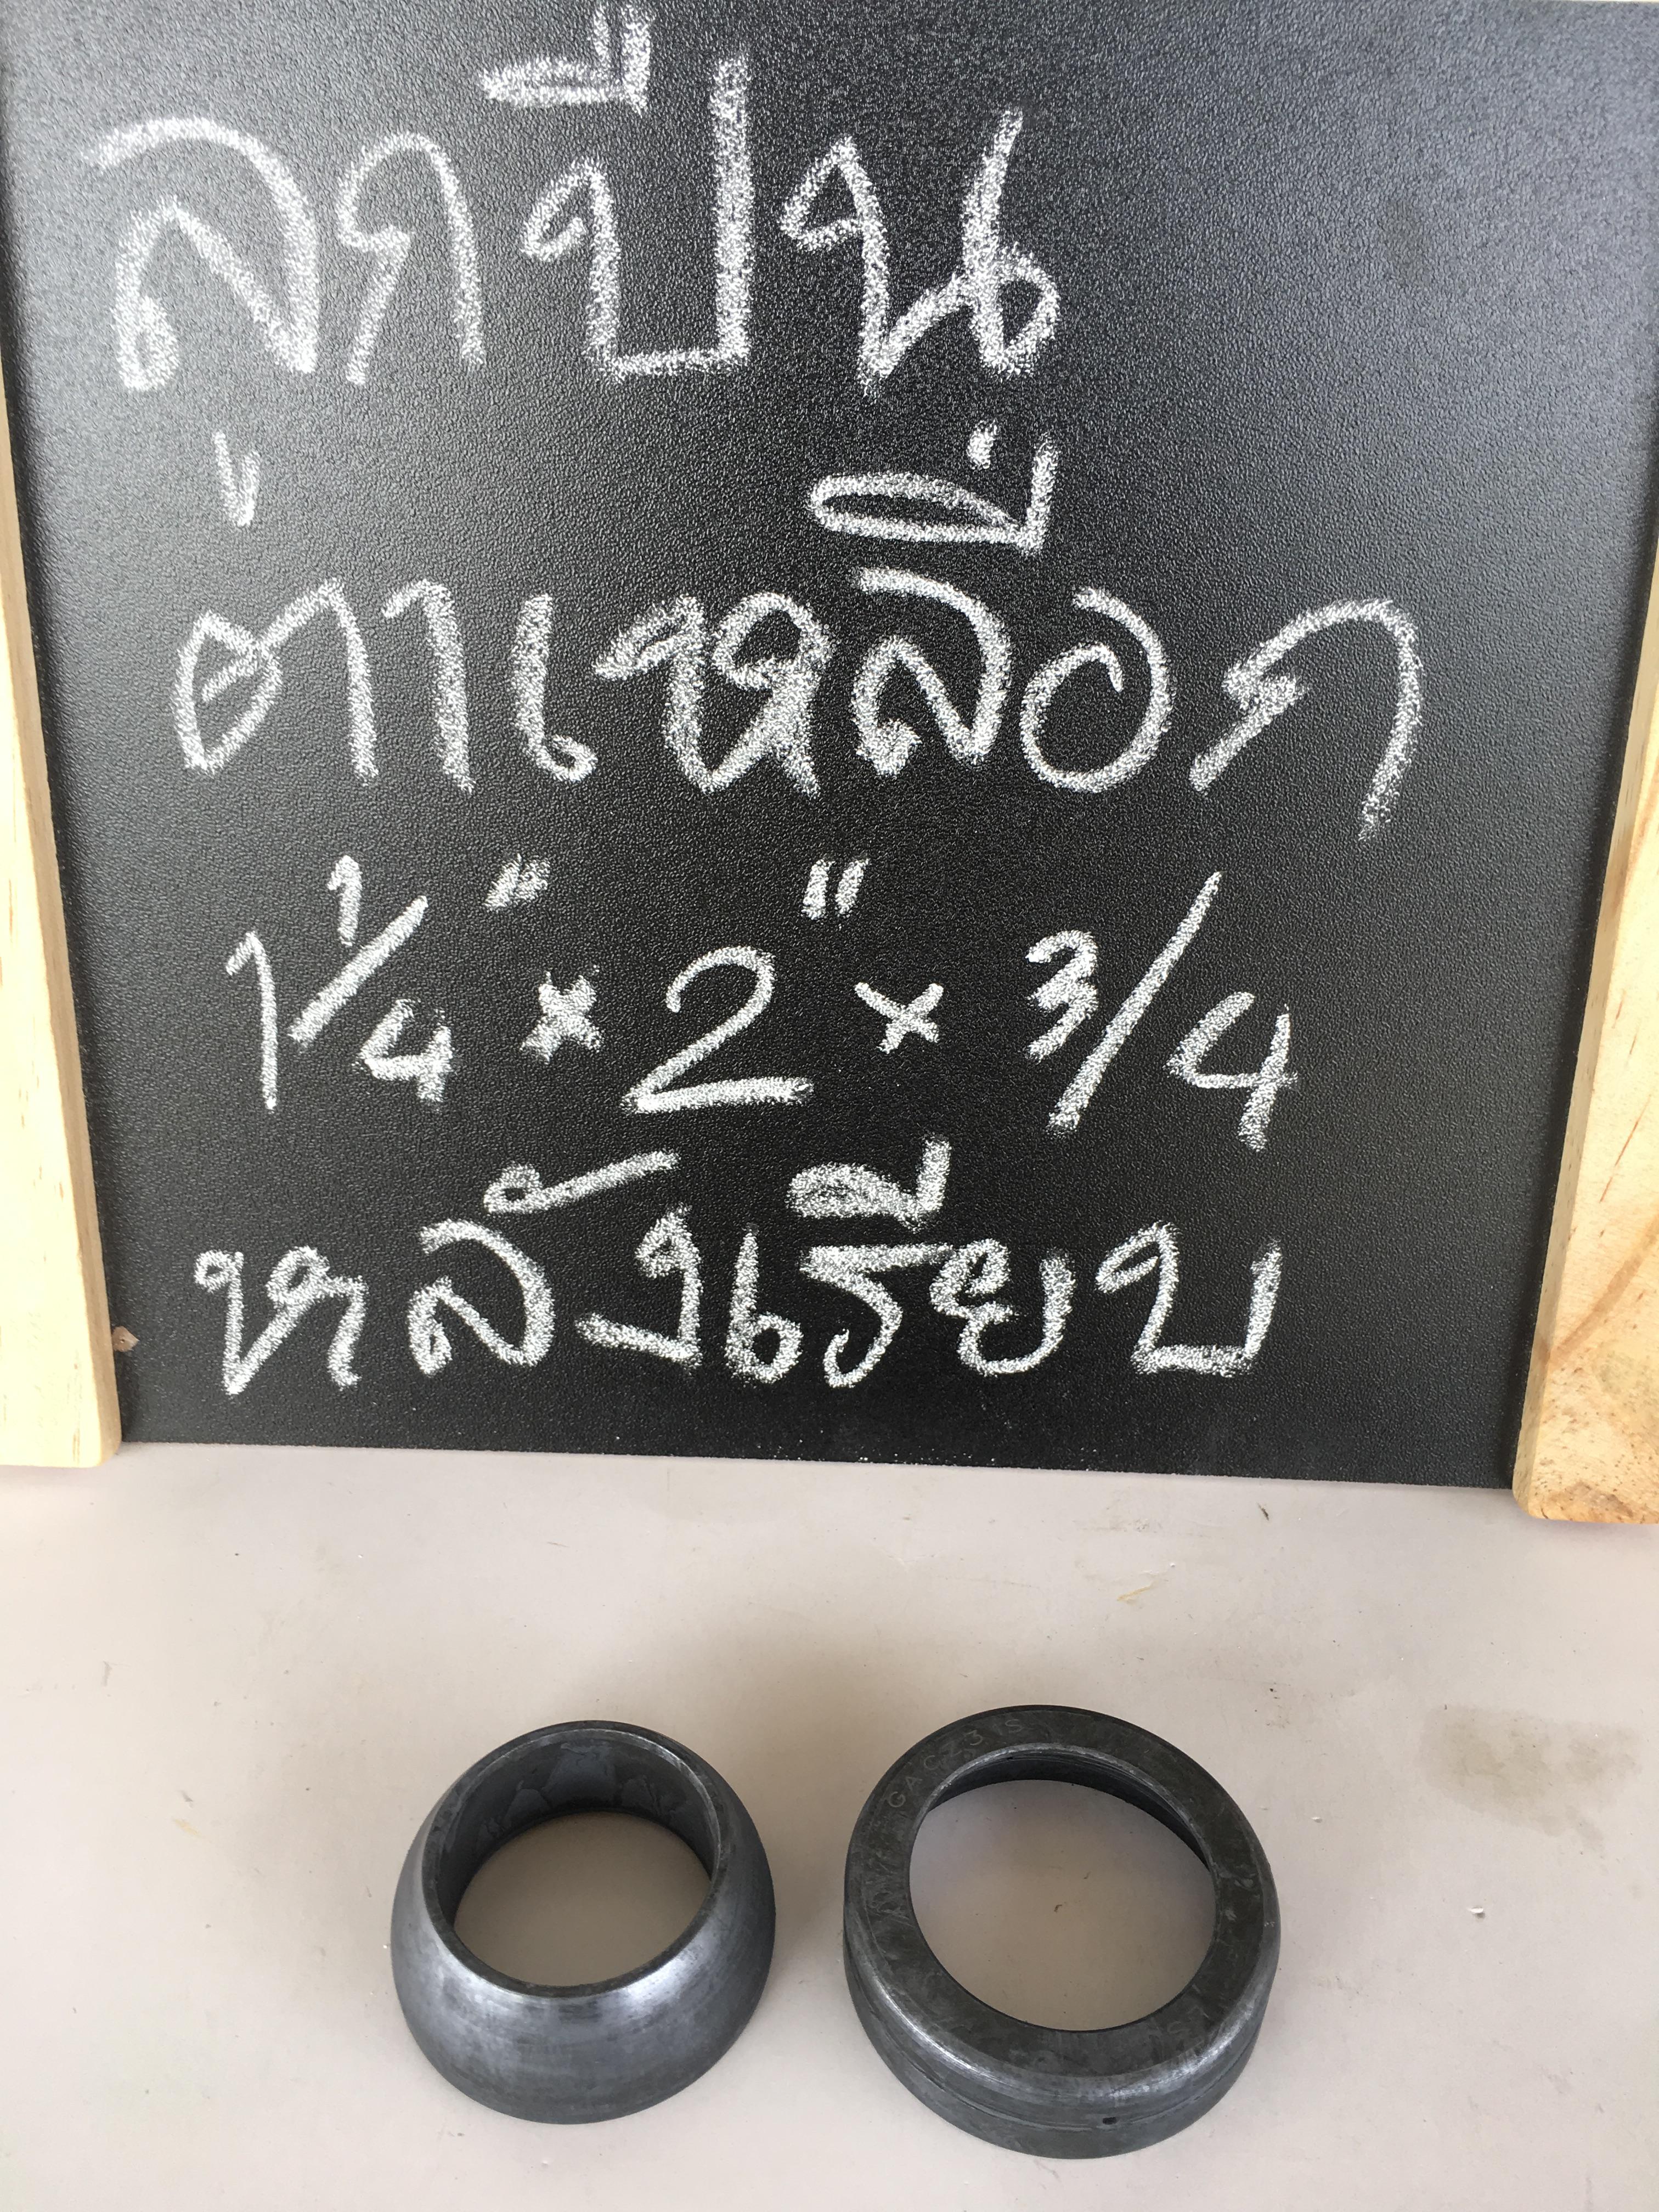 ลูกปืน
ตาเหลือก
1 1/4" × 2" × 3/4
หลังเรียบ